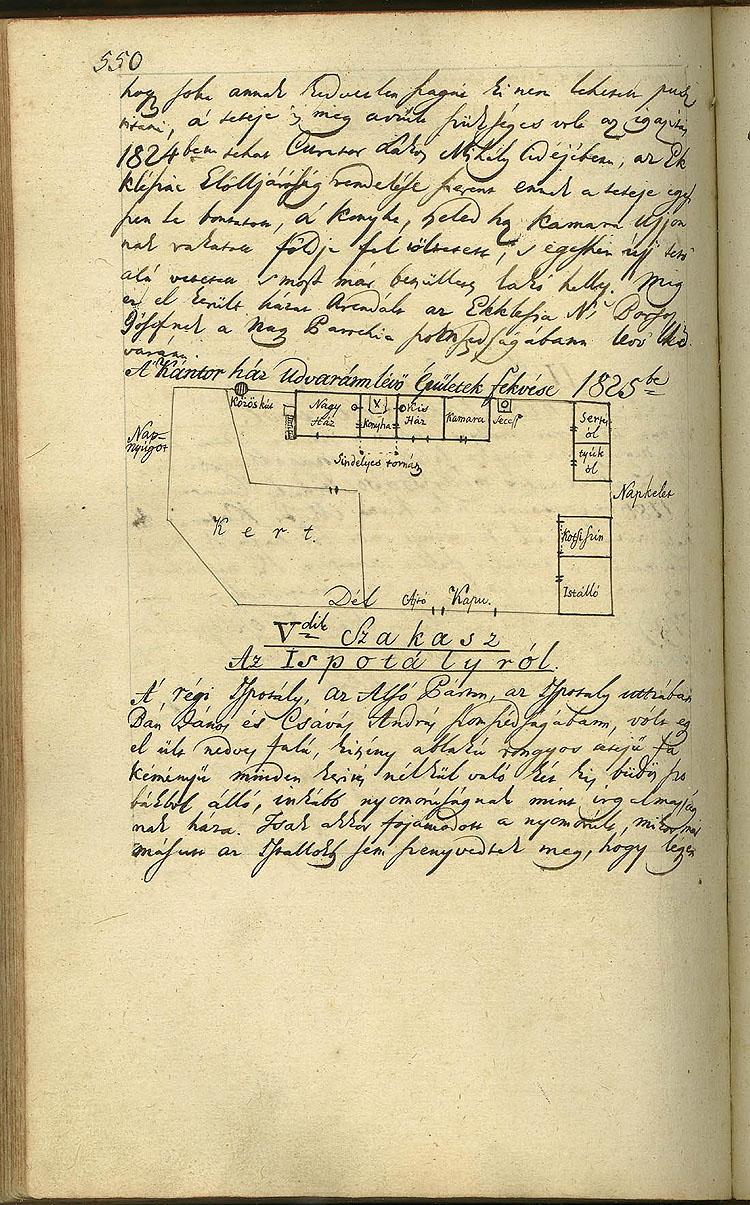 550
hogy soha annak kedvetlen szagát ki nem lehetett pusz
títani, a' teteje is meg avúlt szükséges volt az igazítás
1824ben tehát Curator Lakos Mihály idejében, az Ek
klésiai Elölljáróság rendelése szerént ennek a teteje egé
szen le bontatott, a' konyha, kamara ujjon
nak rakatott földje fel töltetett, s egészen új tető
alá vétetett s most már betsülletes lakó helly. Míg
ez el készült házat Árendált az Ekklésia Ns
Jósefnek a Nagy Parochia szomszédságában levő
A' Kántor ház Udvarán lévő Épületek fekvése 1825be
Közös kút
Nagy Ház
Konyha
Kis Ház
Kamara
Secess
Sertés ól
tyúk ól
Nap=nyúgot
Sindelyes tornátz
Napkelet
Kert.
Kotsi szín
Istálló
Dél Ajtó Kapu.
Vdik Szakasz
Az Ispotályról.
A' régi Ispotály, az Alsó Párton, az Ispotály uttzában
Dan János és Csávás András szomszédságában, volt eg
el ült nedves falú, kitsiny ablakú rongyos tetejű fa
kéményű minden kerítés nélkül való két kis büdös szo
bákból álló, inkább nyomorúságnak mint irgalmasság
nak háza. Tsak akkor folyamodott a nyomorult, mikor már
másutt az Istállókb sem szenyvedték meg, hogy legyen